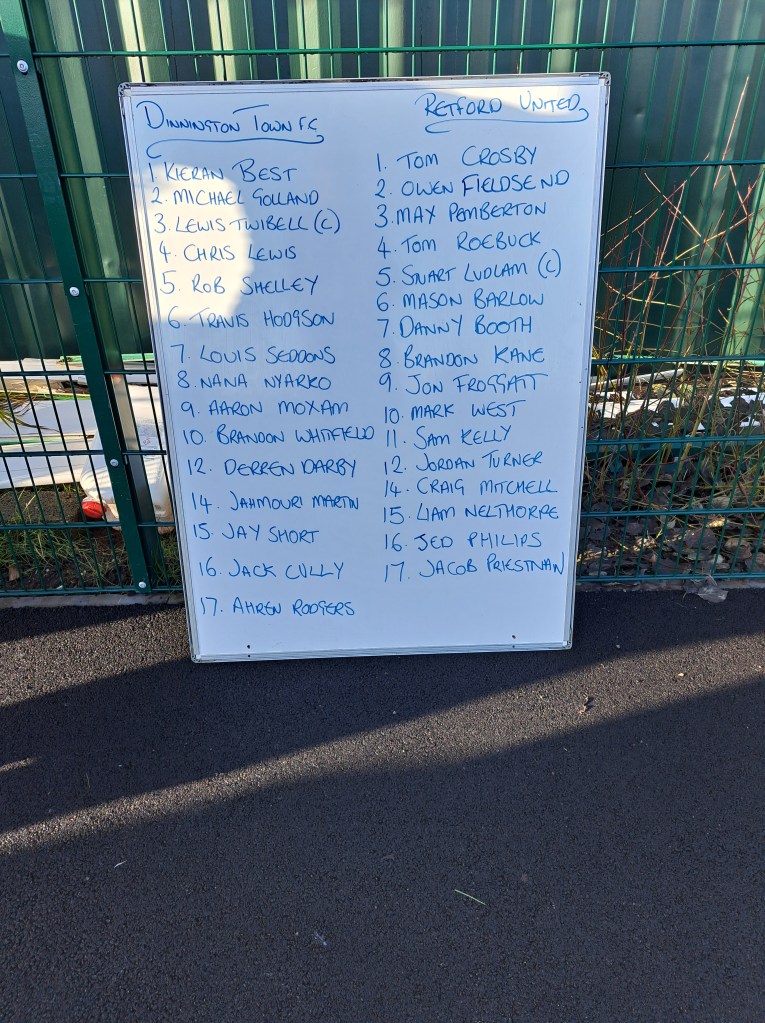 DINNINGTON TOWN FC
1 KIERAN BEST
2. MICHAEL GOLLAND
3. LEWIS TWIBELL (C)
4. CHRIS LEWIS
5. ROB SHELLEY
6. TRAVIS HODGSON
7. LOUIS SEDDONS
8. NANA NYARKO
9. AARON MOXAM
10. BRANDON WHITFIELD
12. DERREN DARBY
14. JAHMOURI MARTIN
15. JAY SHORT
16. JACK CULLY
17. AHREN RODGERS
RETFORD UNITED
1. TOM CROSBY
2. OWEN FIELDSEND
3. MAX PEMBERTON
4. TOM ROEBUCK
5. STUART LUDLAM (C)
6. MASON BARLOW
7. DANNY BOOTH
8. BRANDON KANE
9. JON FROGGATT
10. MARK WEST
11. SAM KELLY
12. JORDAN TURNER
14. CRAIG MITCHELL
15. LIAM NELTHORPE
16. JED PHILIPS
17. JACOB PRIESTNAN